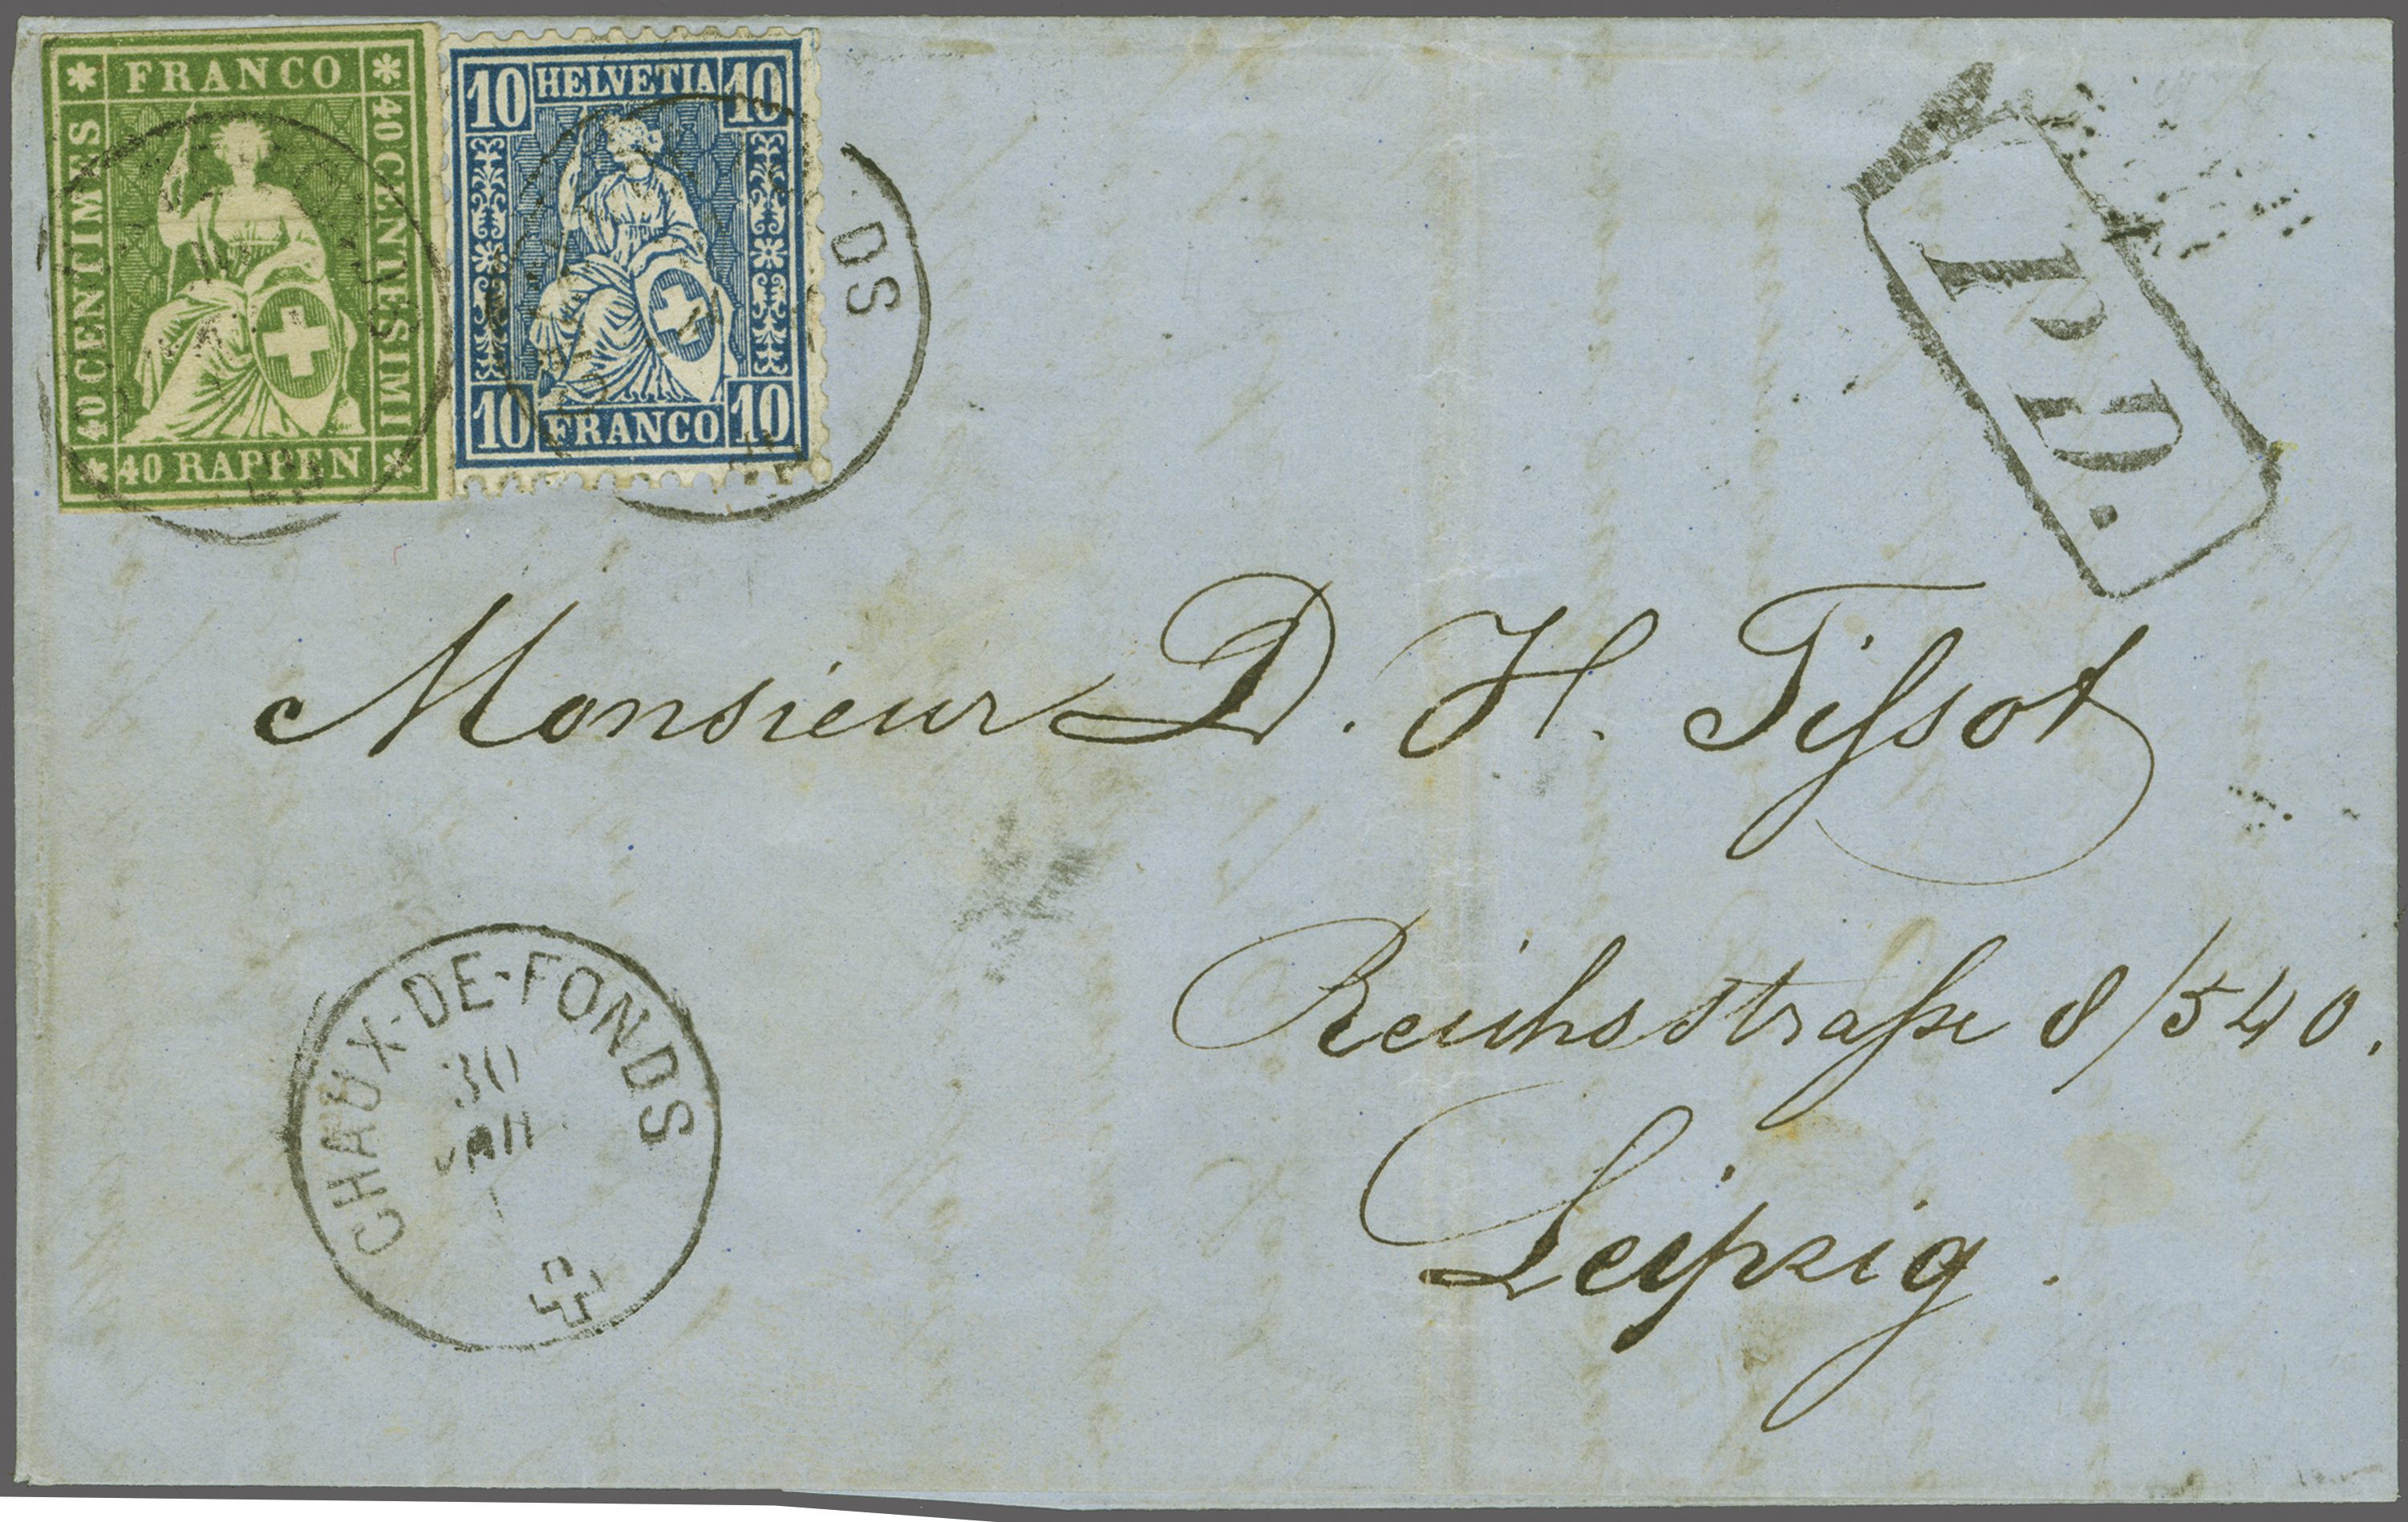 FRANCO
40 CENTIMES
40 CENTESIMI
40 RAPPEN
10 HELVETIA 10
10 FRANCO 10
DS
P.D.
Monsieur D. H. Tiſsot
Reichsstraße 8/540.
Leipzig.
CHAUX-DE-FONDS
30